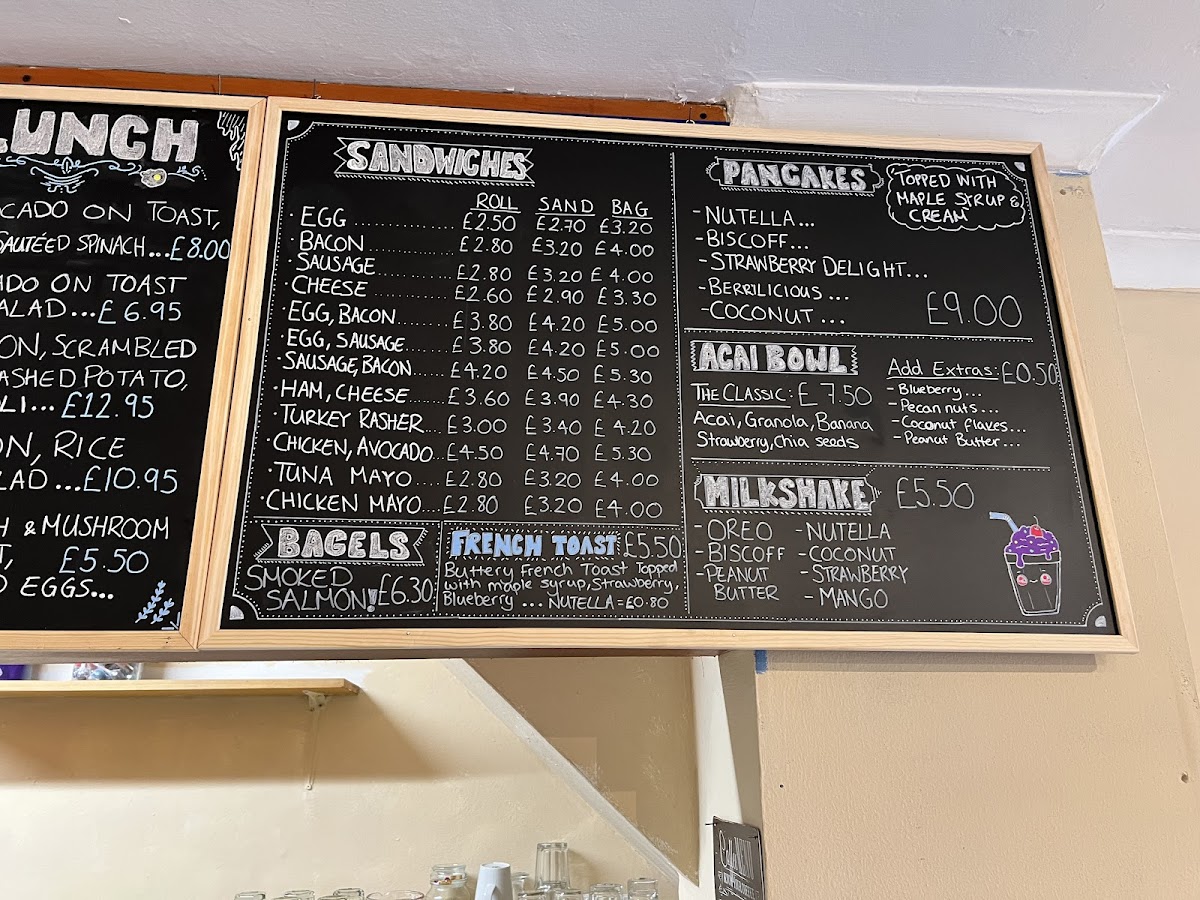 LUNCH
CADO ON TOAST,
SAUTÉED SPINACH...£8.00
ADO ON TOAST
ALAD...£6.95
ON, SCRAMBLED
ASHED POTATO,
LI...£12.95
ON, RICE
LAD...£10.95
H & MUSHROOM
T, £5.50
D EGGS...
SANDWICHES
ROLL SAND BAG
· EGG.................. £2.50 £2.70 £3.20
· BACON............... £2.80 £3.20 £4.00
· SAUSAGE............ £2.80 £3.20 £4.00
· CHEESE.............. £2.60 £2.90 £3.30
· EGG, BACON........ £3.80 £4.20 £5.00
· EGG, SAUSAGE...... £3.80 £4.20 £5.00
· SAUSAGE, BACON..... £4.20 £4.50 £5.30
· HAM, CHEESE...... £3.60 £3.90 £4.30
· TURKEY RASHER... £3.00 £3.40 £4.20
· CHICKEN, AVOCADO... £4.50 £4.70 £5.30
· TUNA MAYO.... £2.80 £3.20 £4.00
· CHICKEN MAYO.... £2.80 £3.20 £4.00
BAGELS
SMOKED
SALMON! £6.30
FRENCH TOAST £5.50
Buttery French Toast Topped
with maple syrup, Strawberry,
Blueberry ... NUTELLA = £0.80
PANCAKES
TOPPED WITH
MAPLE SYRUP &
CREAM
- NUTELLA...
- BISCOFF...
- STRAWBERRY DELIGHT...
- BERRILICIOUS ...
- COCONUT ... £9.00
ACAI BOWL
THE CLASSIC: £7.50
Acai, Granola, Banana
Strawberry, Chia seeds
Add Extras: £0.50
- Blueberry...
- Pecan nuts...
- Coconut flakes...
- Peanut Butter...
MILKSHAKE £5.50
- OREO - NUTELLA
- BISCOFF - COCONUT
- PEANUT - STRAWBERRY
BUTTER - MANGO